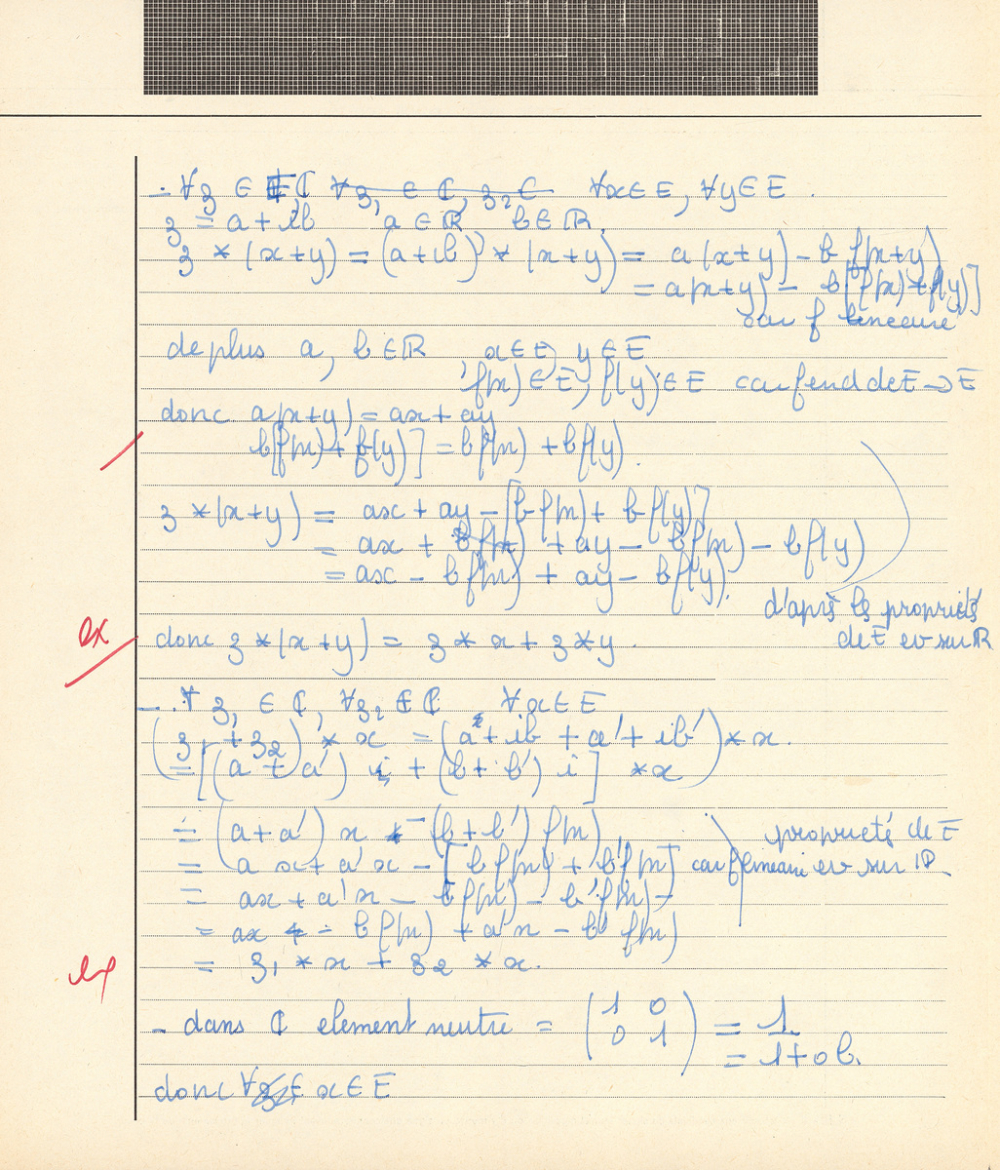 - ∀z ∈ ℂ ∀x∈E, ∀y∈E.
z = a + ib a ∈ ℝ b ∈ ℝ.
z * (x+y) = (a+ib) * (x+y) = a(x+y) - b f(x+y)
= a(x+y) - b[f(x)+f(y)]
car f linéaire
de plus a, b ∈ ℝ, x∈E, y∈E
f(x)∈E, f(y)∈E car f end de E→E
donc a(x+y) = ax + ay
b[f(x)+f(y)] = bf(x) + bf(y).
z *(x+y) = ax + ay - [bf(x) + bf(y)]
= ax + ay - bf(x) - bf(y)
= ax - bf(x) + ay - bf(y).
d'après les propriétés
de E ev sur ℝ
donc z *(x+y) = z * x + z * y.
- ∀ z₁ ∈ ℂ, ∀z₂ ∈ ℂ ∀x∈E
(z₁ + z₂) * x = (a + ib + a' + ib') * x.
= [(a + a') + (b + b') i] * x
= (a+a') x - (b+b') f(x)
propriété de E
= a x + a'x - [bf(x) + b'f(x)] car f linéaire ev sur ℝ
= ax + a'x - bf(x) - b'f(x)
= ax - bf(x) + a'x - b' f(x)
= z₁ * x + z₂ * x.
- dans ℂ element neutre = (1 0
0 1) = 1
= 1+0b.
donc ∀ x∈E